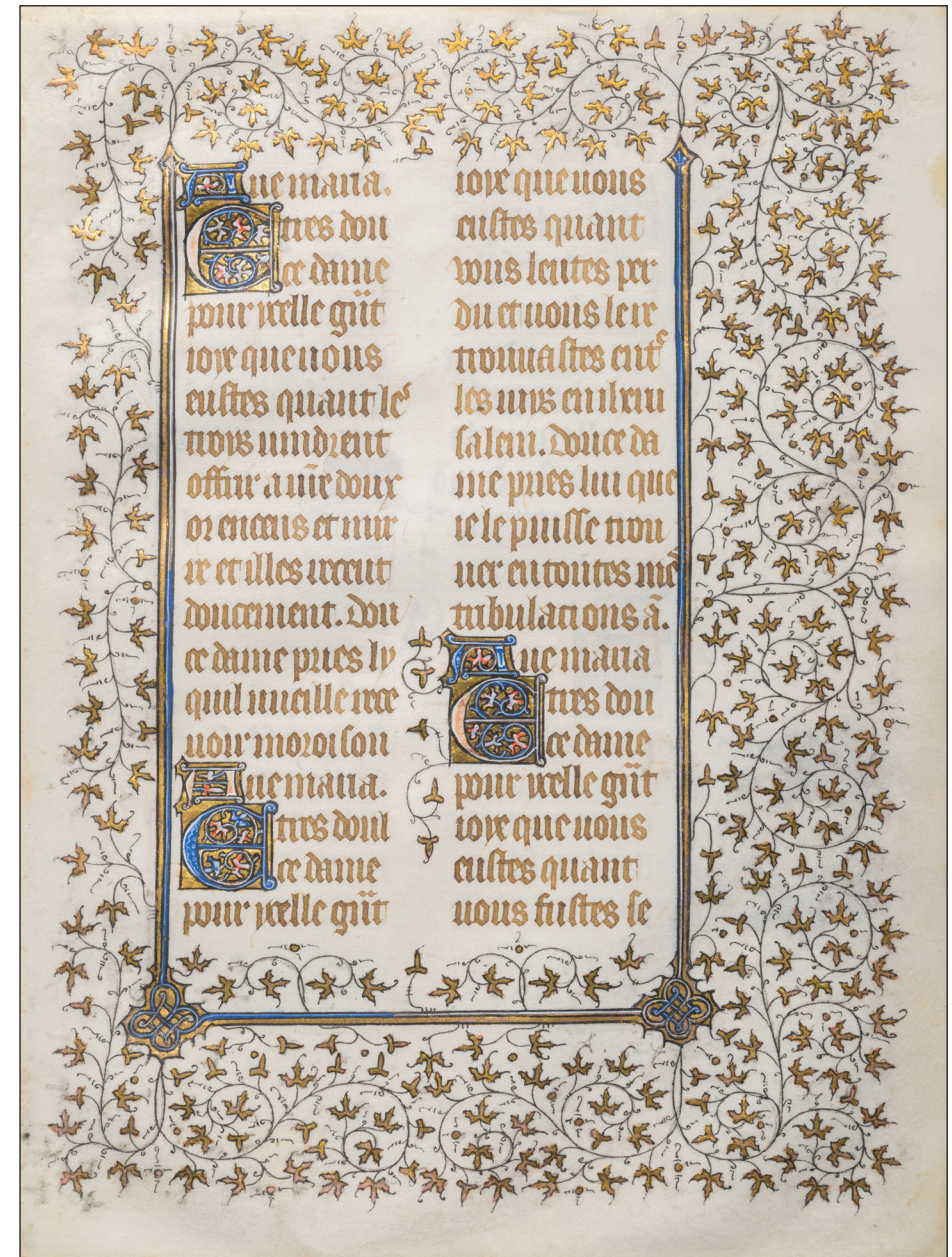 Aue maria.
E tres dou
ce dame
pour ycelle gn̄t
ioye que uous
eustes quant les
troys uindrent
offrir a ur̄e doux
or encens et mir
re et il les recut
doucement. Dou
ce dame pries ly
quil uueille rece
uoir moroison
Aue maria.
E tres doul
ce dame
pour ycelle gn̄t
ioye que uous
eustes quant
vous leutes per
du et uous le re
trouuastes entr̄
les iuys en iheru
salem. Douce da
me pries lui que
ie le puisse trou
uer en toutes mes
tribulacions a.
Aue maria
E tres dou
ce dame
pour ycelle gn̄t
ioye que uous
eustes quant
uous fustes se